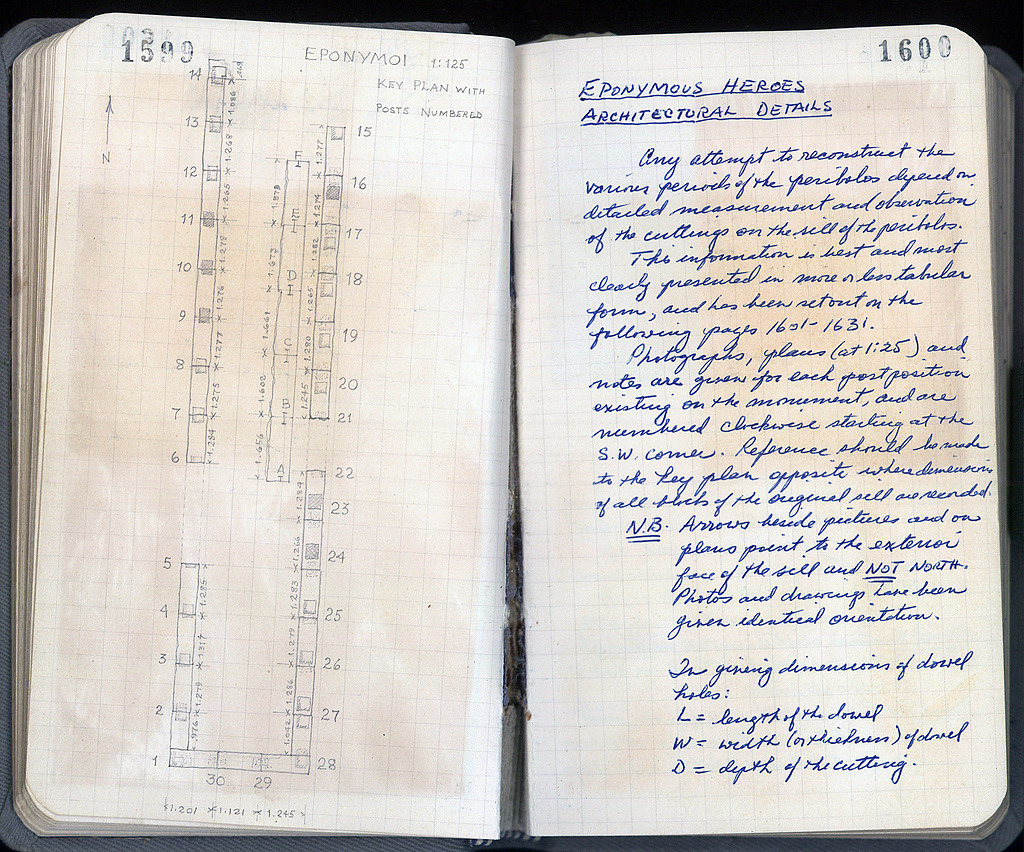 1599
EPONYMOI 1:125
KEY PLAN WITH
POSTS NUMBERED
N
14
13
12
11
10
9
8
7
6
5
4
3
2
1
1.086
1.268
1.265
1.278
1.276
1.277
1.275
1.284
1.285
1.317
1.279
.976
F
E
D
C
B
A
1.673
1.661
1.602
1.656
15
16
17
18
19
20
21
22
23
24
25
26
27
28
1.277
1.274
1.282
1.265
1.280
1.245
1.284
1.266
1.283
1.279
1.286
1.042
30 29
1.201 1.121 1.245
1600
EPONYMOUS HEROES
ARCHITECTURAL DETAILS
Any attempt to reconstruct the
various periods of the peribolos depend on
detailed measurement and observation
of the cuttings on the sill of the peribolos.
This information is best and most
clearly presented in more or less tabular
form, and has been set out on the
following pages 1601-1631.
Photographs, plans (at 1:25) and
notes are given for each post position
existing on the monument, and are
numbered clockwise starting at the
S.W. corner. Reference should be made
to the key plan opposite where dimensions
of all blocks of the original sill are recorded.
N.B. Arrows beside pictures and on
plans point to the exterior
face of the sill and NOT NORTH.
Photos and drawings have been
given identical orientation.
In giving dimensions of dowel
holes:
L = length of the dowel
W = width (or thickness) of dowel
D = depth of the cutting.